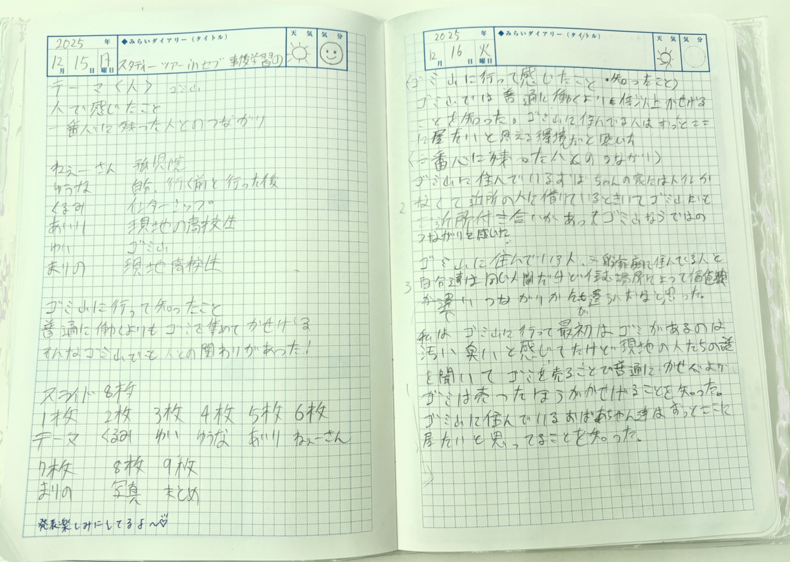 2025 年
◆みらいダイアリー（タイトル）
天気
気分
12月 15日 月曜日
スタディーツアーinセブ 事後学習
テーマ〈人〉 ゴミ山
人で感じたこと
一番心に残った人とのつながり
ねぇーさん 孤児院
ゆうな 自分、行く前と行った後
くるみ インターンシップ
あいり 現地の高校生
ゆい ゴミ山
まりの 現地高校生
ゴミ山に行って知ったこと
普通に働くよりもゴミを集めてかせげる
そんなゴミ山でも人との関わりがあった!
スライド8枚
1枚 2枚 3枚 4枚 5枚 6枚
テーマ くるみ ゆい ゆうな あいり ねぇーさん
7枚 8枚 9枚
まりの 写真 まとめ
発表楽しみにしてるよ〜♡
2025 年
◆みらいダイアリー（タイトル）
天気
気分
12月 16日 火曜日
(ゴミ山に行って感じたこと・知ったこと)
ゴミ山では普通に働くよりも倍以上かせげる
ことを知った。ゴミ山に住んでる人はずっとここ
に居たいと思える環境だと思いた
(一番心に残った人とのつながり)
ゴミ山に住んでいるおばあちゃんの家にはトイレが
なくて近所の人に借りているときいてゴミ山にも
2
近所付き合いがあってゴミ山ならではの
つながりを感じた
ゴミ山に住んでいる人、一般家庭に住んでる人と
自分達は同じ人間だけど住む場所によって価値観
3
が違いつながりかたも違うんだなと思った。
私はゴミ山に行って最初はゴミがあるのは
汚い臭いと感じてたけど現地の人たちの話
を聞いてゴミを売ることで普通にかせぐより
1
ゴミは売ったほうがかせげることを知った。
ゴミ山に住んでいるおばあちゃん達はずっとここに
居たいと思ってることを知った。